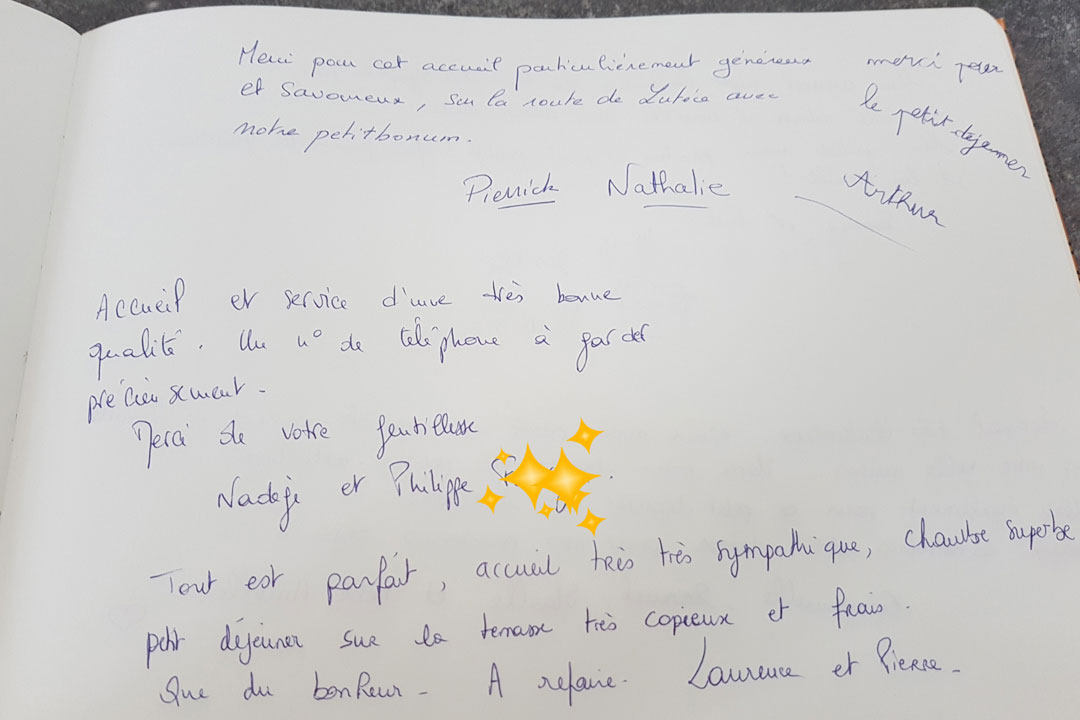 Merci pour cet accueil particulièrement généreux
et savoureux, sur la route de Lutèce avec
notre petitbonum.
merci pour
le petit dejeuner
Pierrick Nathalie Arthur
Accueil et service d'une très bonne
qualité. Un n° de téléphone à garder
précieusement.
Merci de votre gentillesse
Nadège et Philippe
Tout est parfait, accueil très très sympathique, chambre superbe
petit déjeuner sur la terrasse très copieux et frais.
Que du bonheur - A refaire. Laurence et Pierre -